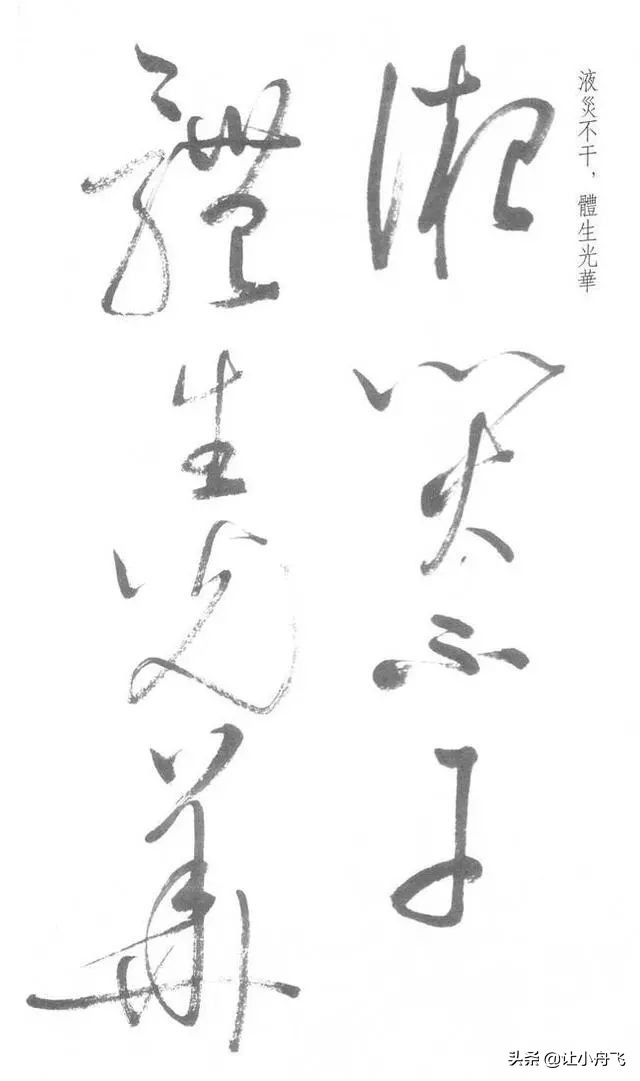 液災不干，體生光華
液災不干
體生光華
头条 @让小舟飞